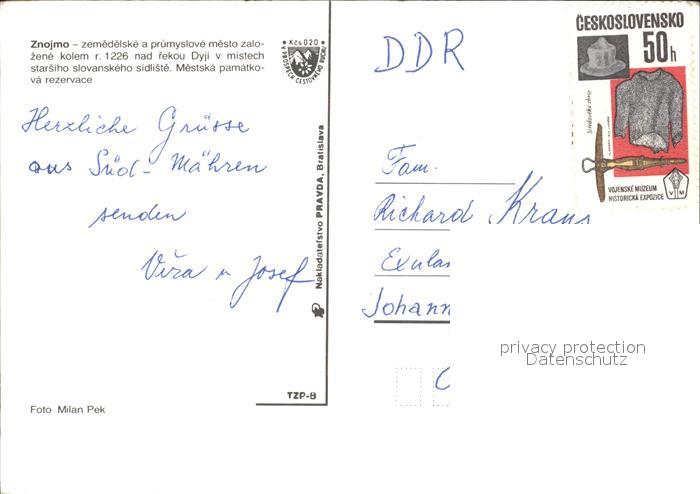 Znojmo – zemědělské a průmyslové město zalo-
žené kolem r. 1226 nad řekou Dyjí v místech
staršího slovanského sídliště. Městská památko-
vá rezervace
Kčs 0,20
VE PROSPĚCH CESTOVNÍHO RUCHU
Herzliche Grüsse
aus Süd-Mähren
senden
Věra u Josef
Foto Milan Pek
Nakladateľstvo PRAVDA, Bratislava
TZP-B
DDR
ČESKOSLOVENSKO
50h
Středověká zbroj
VOJENSKÉ MUZEUM
HISTORICKÁ EXPOZICE
V M
Fam.
Richard Kraus
Exulan
Johann
privacy protection
Datenschutz